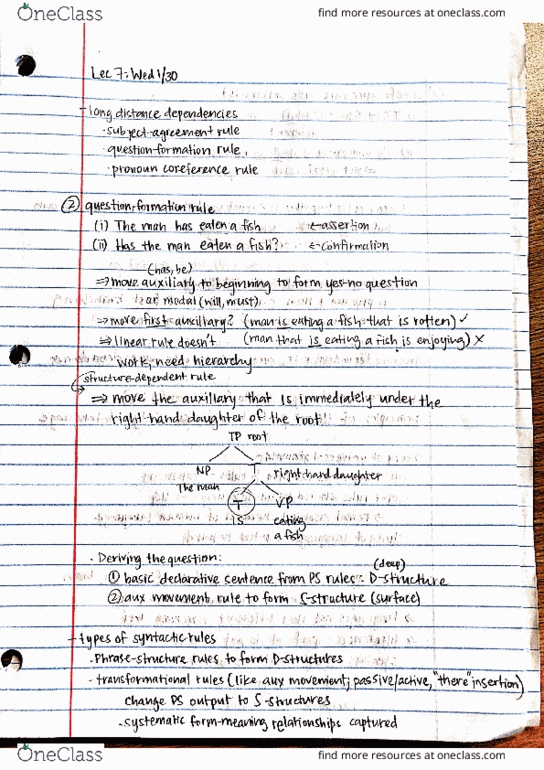 OneClass
find more resources at oneclass.com
Lec 7: Wed 1/30
- long distance dependencies
· subject-agreement rule
· question-formation rule
· pronoun coreference rule
② question-formation rule
(i) The man has eaten a fish ← assertion
(ii) Has the man eaten a fish? ← confirmation
(has, be)
⇒ move auxiliary to beginning to form yes-no question
or modal (will, must)
⇒ move first auxiliary? (man is eating a fish that is rotten) ✓
⇒ linear rule doesn't (man that is eating a fish is enjoying) ✗
work, need hierarchy
structure-dependent rule
⇒ move the auxiliary that is immediately under the
right hand daughter of the root
TP root
NP T' right hand daughter
The man
T VP
is eating
a fish
· Deriving the question:
(deep)
① basic declarative sentence from PS rules: D-structure
② aux movement rule to form S-structure (surface)
- types of syntactic rules
· Phrase-structure rules to form D-structures
· transformational rules (like aux movement, passive/active, "there" insertion)
change PS output to S-structures
· systematic form-meaning relationships captured
OneClass
find more resources at oneclass.com